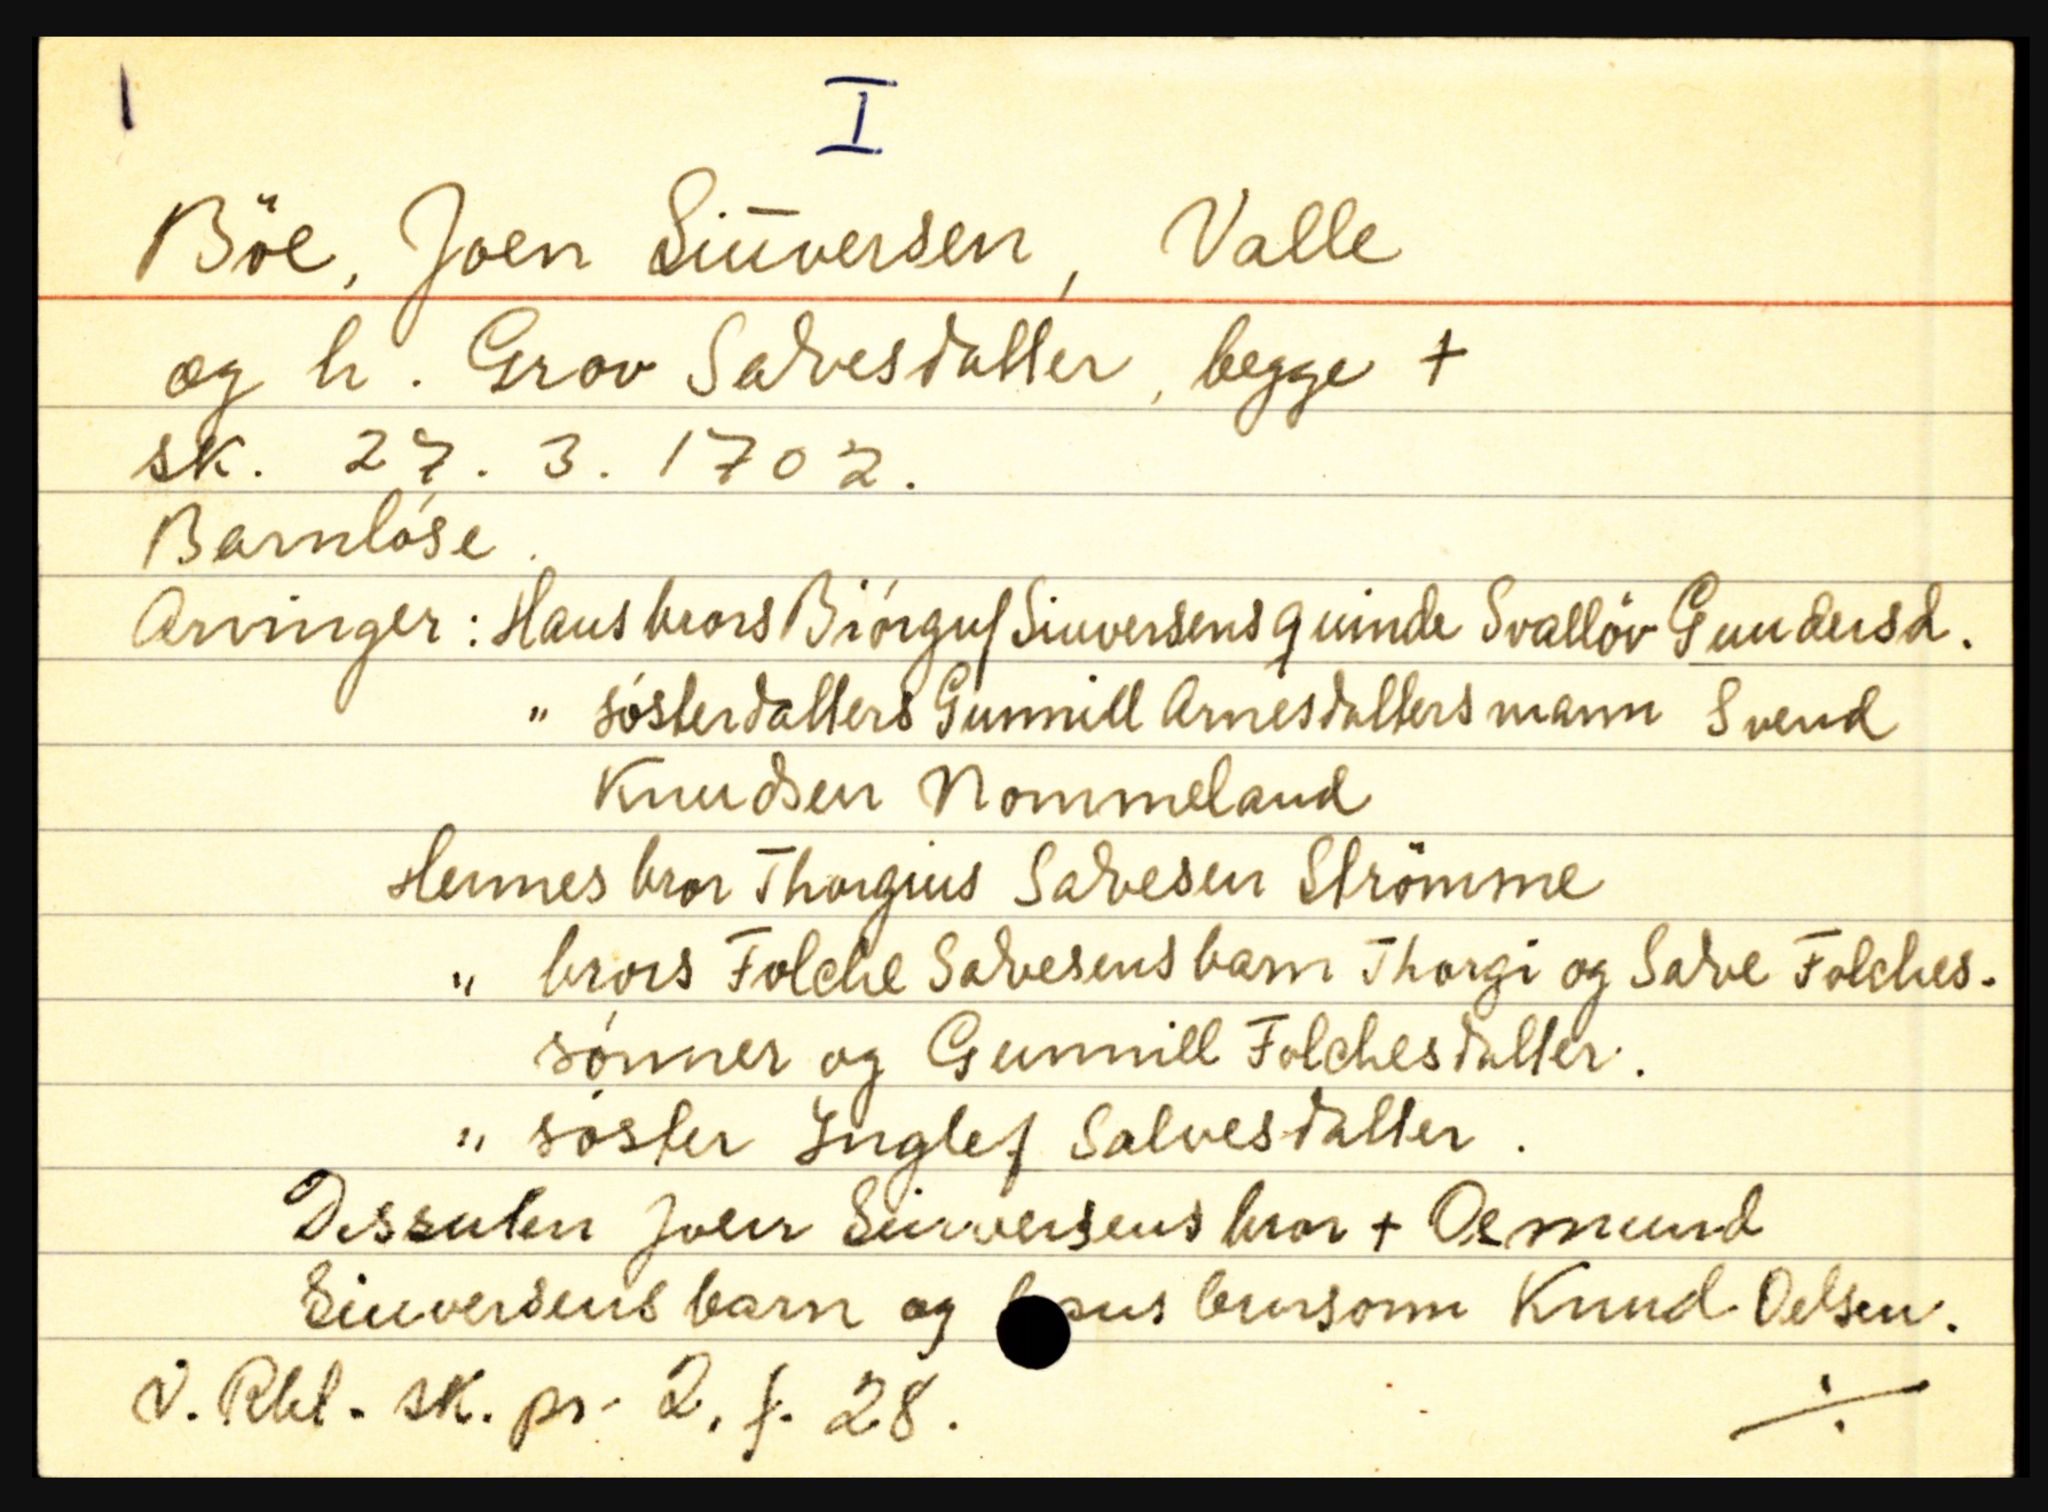 I
Böe, Joen Siuversen, Valle
og h. Grov Salvesdatter, begge +
sk. 27. 3. 1702.
Barnlóse.
Arvinger: Hans brors Biórguf Siuversens quinde Svallóv Gundersd.
" sósterdatters Gunnill Arnesdatters mann Svend
Knudsen Nommeland
Hennes bror Thorgius Salvesen Strömme
" brors Folche Salvesens barn Thorgi og Salve Folches-
sónner og Gunnill Folchesdatter.
" sóster Inglef Salvesdatter.
Dessuten Joen Siuversens bror + Osmund
Siuversens barn og hans brorsonn Knud Oelsen.
V. Rbl. sk. pr. 2, f. 28.
÷